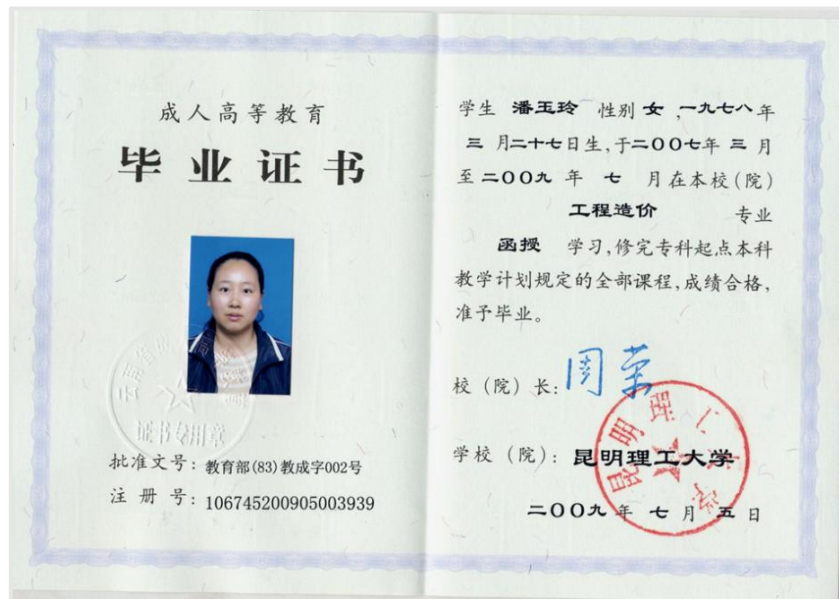 成人高等教育
毕业证书
云南省
证书专用章
批准文号：教育部(83)教成字002号
注册号：106745200905003939
学生 潘玉玲 性别 女，一九七八年
三月二十七日生，于二〇〇七年三月
至二〇〇九年七月在本校（院）
工程造价 专业
函授 学习，修完专科起点本科
教学计划规定的全部课程，成绩合格，
准予毕业。
校（院）长：周荣
学校（院）：昆明理工大学
昆明理工大学
二〇〇九年七月五日